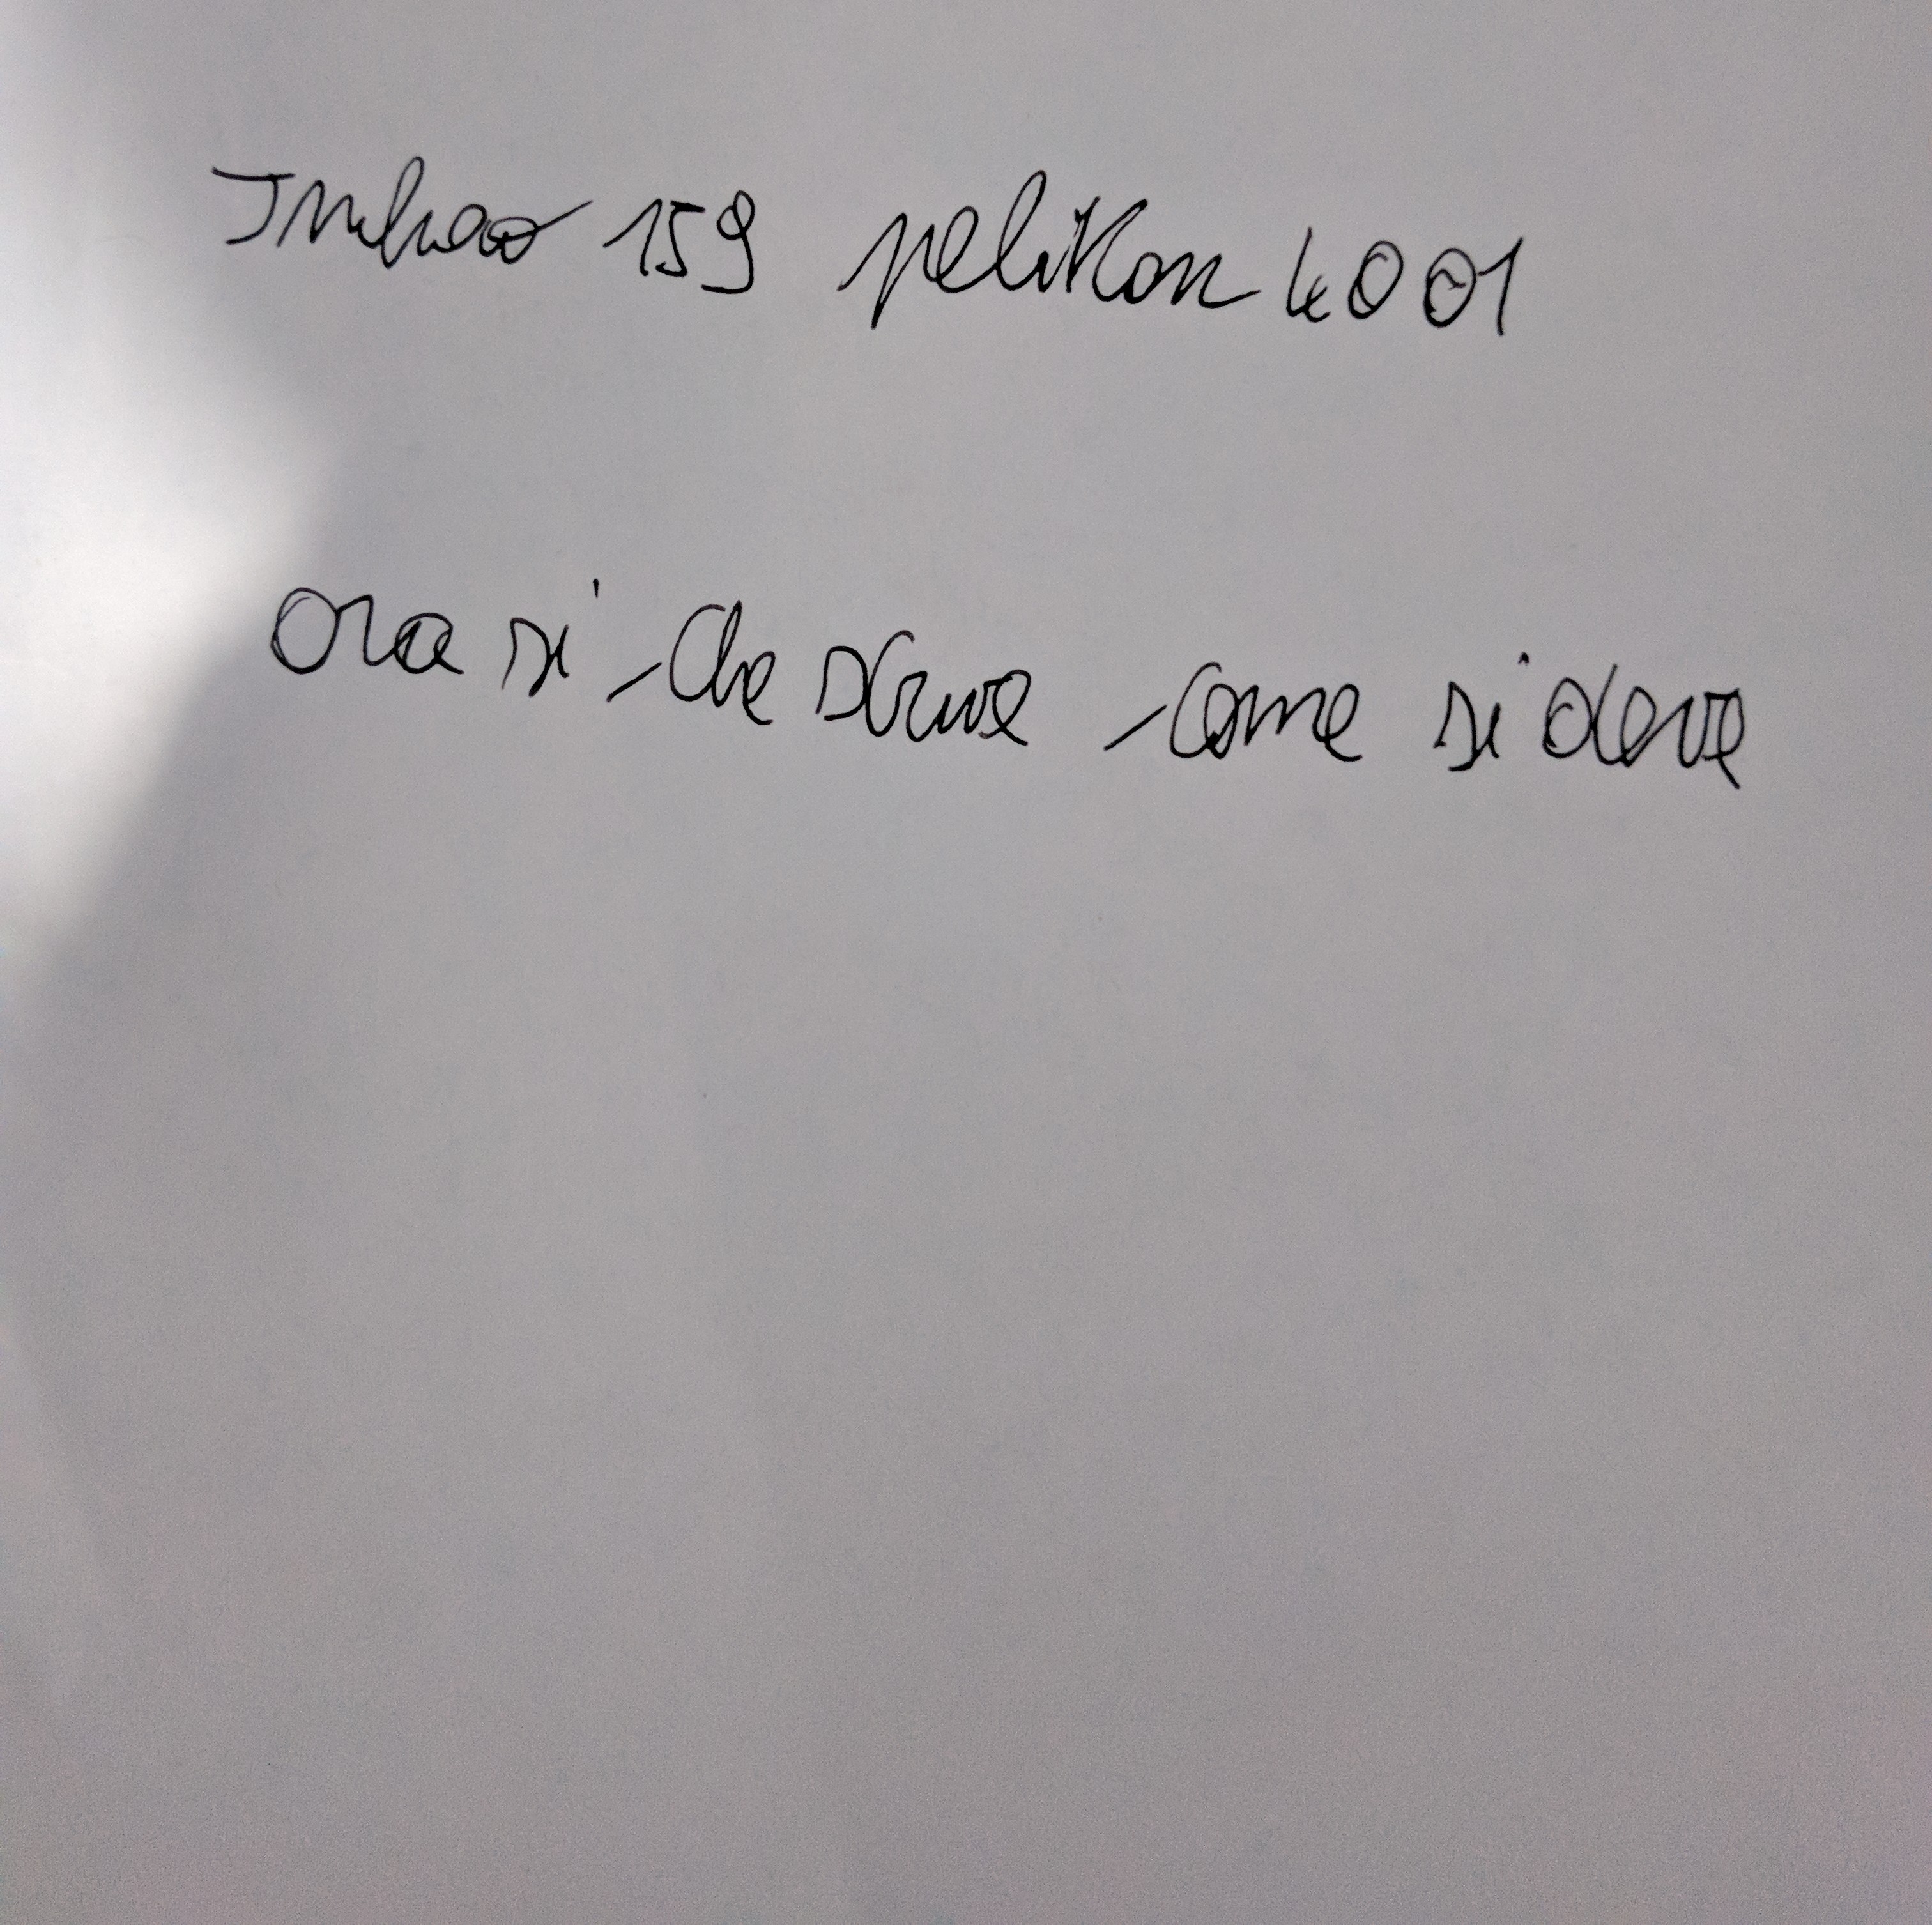 Jinhao 159 pelikan 4001
ora si che scrive come si deve